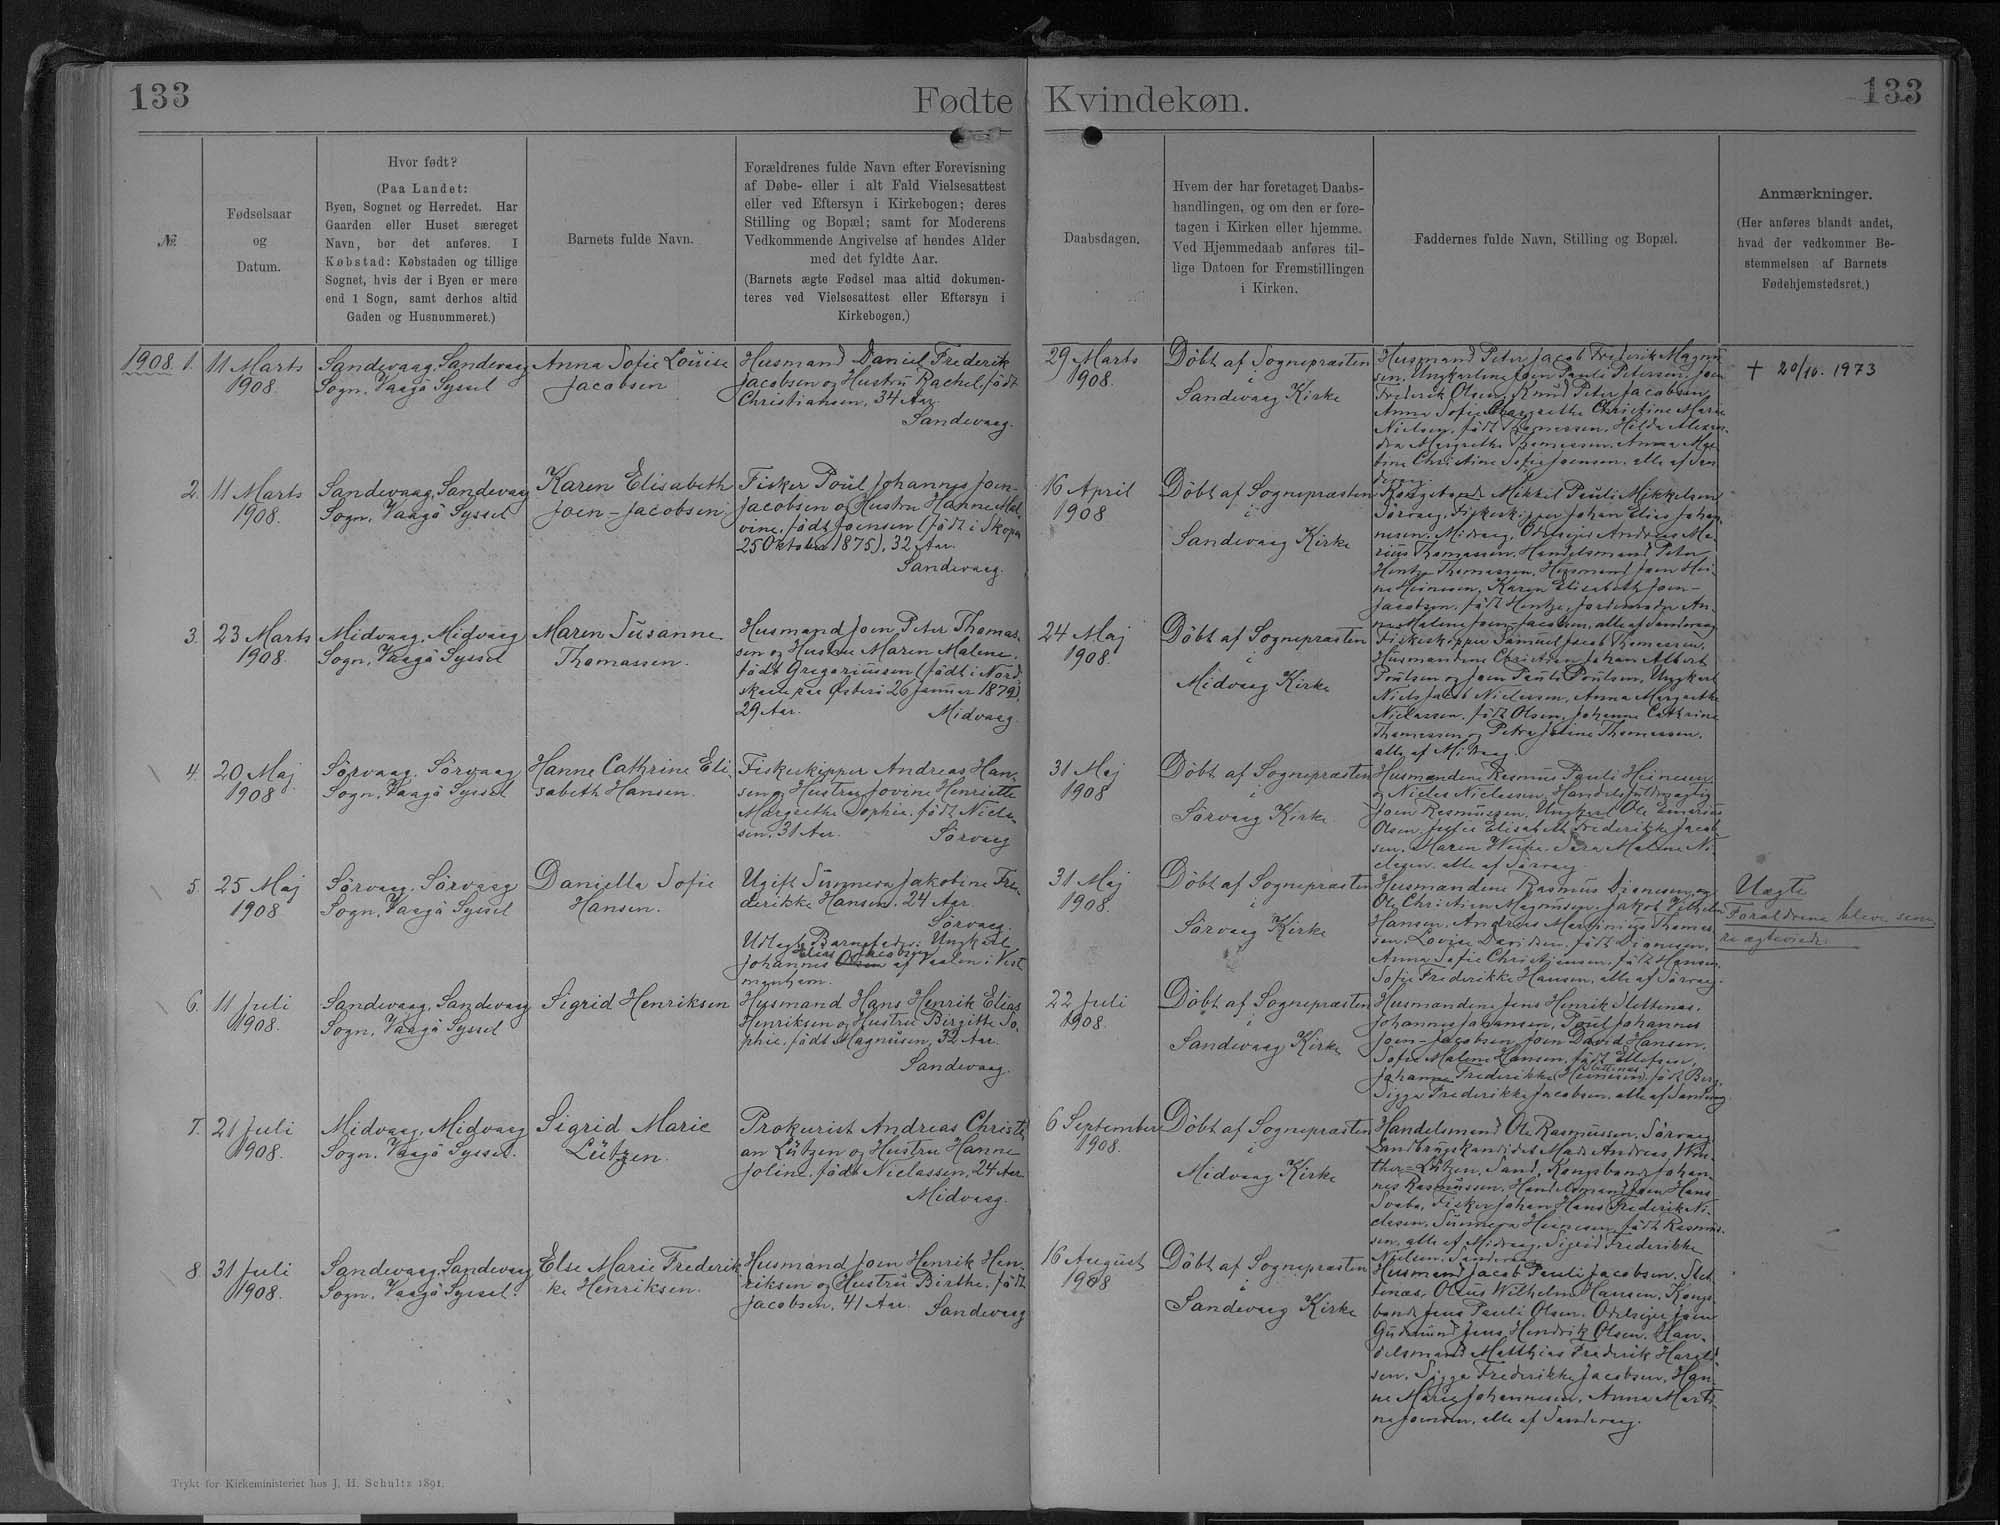 133
Fødte
Kvindekøn.
133
№
Fødselsaar
og
Datum.
Hvor født?
(Paa Landet:
Byen, Sognet og Herredet. Har
Gaarden eller Huset særeget
Navn, bør det anføres. I
Købstad: Købstaden og tillige
Sognet, hvis der i Byen er mere
end 1 Sogn, samt derhos altid
Gaden og Husnummeret.)
Barnets fulde Navn.
Forældrenes fulde Navn efter Forevisning
af Døbe- eller i alt Fald Vielsesattest
eller ved Eftersyn i Kirkebogen; deres
Stilling og Bopæl; samt for Moderens
Vedkommende Angivelse af hendes Alder
med det fyldte Aar.
(Barnets ægte Fødsel maa altid dokumen-
teres ved Vielsesattest eller Eftersyn i
Kirkebogen.)
Daabsdagen.
Hvem der har foretaget Daabs-
handlingen, og om den er fore-
tagen i Kirken eller hjemme.
Ved Hjemmedaab anføres til-
lige Datoen for Fremstillingen
i Kirken.
Faddernes fulde Navn, Stilling og Bopæl.
Anmærkninger.
(Her anføres blandt andet,
hvad der vedkommer Be-
stemmelsen af Barnets
Fødehjemstedsret.)
1908. 1.
11 Marts
1908.
Sandevaag, Sandevaag
Sogn, Vaagö Syssel
Anna Sofie Louise
Jacobsen
Husmand Daniel Frederik
Jacobsen og Hustru Rachel, födt
Christiansen, 34 Aar.
Sandevaag.
29 Marts
1908.
Döbt af Sognepræsten
i
Sandevaag Kirke
Husmand Peter Jacob Frederik Magnu
sen, Ungkarlene Joen Pauli Petersen, Joen
Frederik Olsen, Knud Peter Jacobsen,
Anna Sofie Margrethe Christine Marie
Nielsen, födt Thomassen, Hilda Alexan-
dra Margrethe Thomassen, Anna Mar
tine Christine Sofie Joensen, alle af San
devaag.
+ 20/10. 1973
2.
11 Marts
1908.
Sandevaag, Sandevaag
Sogn, Vaagö Syssel
Karen Elisabeth
Joen-Jacobsen
Fisker Poul Johannes Joen-
Jacobsen og Hustru Hanne Mal
vine, födt Joensen (födt i Skopun
25 Oktober 1875), 32 Aar.
Sandevaag.
16 April
1908
Döbt af Sognepræsten
i
Sandevaag Kirke
Kongsbonde Mikkel Pauli Mikkelsen
Sörvaag, Fiskeskipper Johan Elias Johan-
nesen, Midvaag, Odelsejer Andreas Ma
rius Thomassen, Handelsmand Peter
Hentze Thomassen, Husmand Joen Hei-
ne Heinesen, Karen Elisabeth Joen-
Jacobsen, födt Hentze, Jordemoder An-
na Malene Joen-Jacobsen, alle af Sandevaag
3.
23 Marts
1908.
Midvaag, Midvaag
Sogn, Vaagö Syssel
Maren Susanne
Thomassen.
Husmand Joen Peter Thomas-
sen og Hustru Maren Malene,
födt Gregoriussen (födt i Nord-
skaale paa Österö 26 Januar 1879),
29 Aar.
Midvaag.
24 Maj
1908.
Döbt af Sognepræsten
i
Midvaag Kirke
Fiskeskipper Samuel Jacob Thomassen,
Husmændene Christian Johan Albert
Poulsen og Joen Pauli Poulsen, Ungkarl
Niels Jacob Niclassen, Anna Margrethe
Niclassen, födt Olsen, Johanne Cathrine
Thomassen og Petra Jacine Thomassen,
alle af Midvaag.
4.
20 Maj
1908
Sörvaag, Sörvaag
Sogn, Vaagö Syssel
Hanne Cathrine Eli
sabeth Hansen.
Fiskeskipper Andreas Han-
sen og Hustru Jovine Henriette
Margrethe Sophie, födt Niela-
sen, 31 Aar.
Sörvaag
31 Maj
1908
Döbt af Sognepræsten
i
Sörvaag Kirke
Husmændene Rasmus Pauli Heinesen
og Nicles Niclassen, Handelsfuldmægtig
Joen Rasmussen, Ungkarl Ole Emarius
Olsen, Julie Elisabeth Frederikke Jacob
sen, Maren Weihe, Sara Malene Ni-
clasen, alle af Sörvaag.
5.
25 Maj
1908
Sörvaag, Sörvaag
Sogn, Vaagö Syssel
Daniella Sofie
Hansen.
Ugift Sunneva Jakobine Fre-
derikke Hansen, 24 Aar.
Sörvaag.
Udlagt Barnefader: Ungkarl
Elias Jacobsen
Johannes Olsen af Vaalen i Vest
manhavn.
31 Maj
1908.
Döbt af Sognepræsten
i
Sörvaag Kirke
Husmændene Rasmus Djonesen og
Ole Christian Magnussen, Jakob Vilhelm
Hansen, Andreas Martinius Thomas-
sen, Lovise Davidsen, födt Djonesen,
Anna Sofie Christiansen, födt Hansen,
Sofie Frederikke Hansen, alle af Sörvaag.
Uægte
Forældrene bleve sene
re ægteviede.
6.
11 Juli
1908.
Sandevaag, Sandevaag
Sogn, Vaagö Syssel
Sigrid Henriksen
Husmand Hans Henrik Elias
Henriksen og Hustru Birgitte So
phie, födt Magnusen, 32 Aar.
Sandevaag.
22 Juli
1908.
Döbt af Sognepræsten
i
Sandevaag Kirke
Husmændene Jens Henrik Slettenæs,
Johannes Johansen, Poul Johannes
Joen-Jacobsen, Joen David Hansen,
Sofie Malene Hansen, födt Ellefsen,
Johanne Frederikke (Heinesen), födt Berg,
Sigga Frederikke Jacobsen, alle af Sandevaag
7.
21 Juli
1908.
Midvaag, Midvaag
Sogn, Vaagö Syssel.
Sigrid Marie
Lützen.
Prokurist Andreas Christi
an Lützen og Hustru Hanne
Joline, födt Niclassen, 24 Aar
Midvaag.
6 September
1908.
Döbt af Sognepræsten
i
Midvaag Kirke
Handelsmand Ole Rasmussen, Sörvaag
Landbrugskandidat Mads Andreas Win-
ther-Lützen, Sand, Kongsbonde Johan-
nes Rasmussen, Handelsmand Joen Hans
Svabo, Fisker Johan Hans Frederik Ni-
clasen, Sunneva Heinesen, födt Rasmus-
sen, alle af Midvaag, Sigrid Frederikke
Nielsen, Sandevaag
8
31 Juli
1908.
Sandevaag, Sandevaag
Sogn, Vaagö Syssel
Else Marie Frederik
ke Henriksen.
Husmand Joen Henrik Hen-
riksen og Hustru Birthe, födt
Jacobsen, 41 Aar.
Sandevaag
16 August
1908
Döbt af Sognepræsten
i
Sandevaag Kirke
Husmand Jacob Pauli Jacobsen, Slet-
tenæs, Olaus Wilhelm Hansen, Kongs-
bonde Jens Pauli Olsen, Odelsejer Joen
Gudmund Jens Hendrik Olsen, Han-
delsmand Matthias Frederik Harald-
sen, Sigga Frederikke Jacobsen, Han-
ne Marie Johannesen, Anna Marti-
ne Joensen, alle af Sandevaag.
Trykt for Kirkeministeriet hos J. H. Schultz 1891.